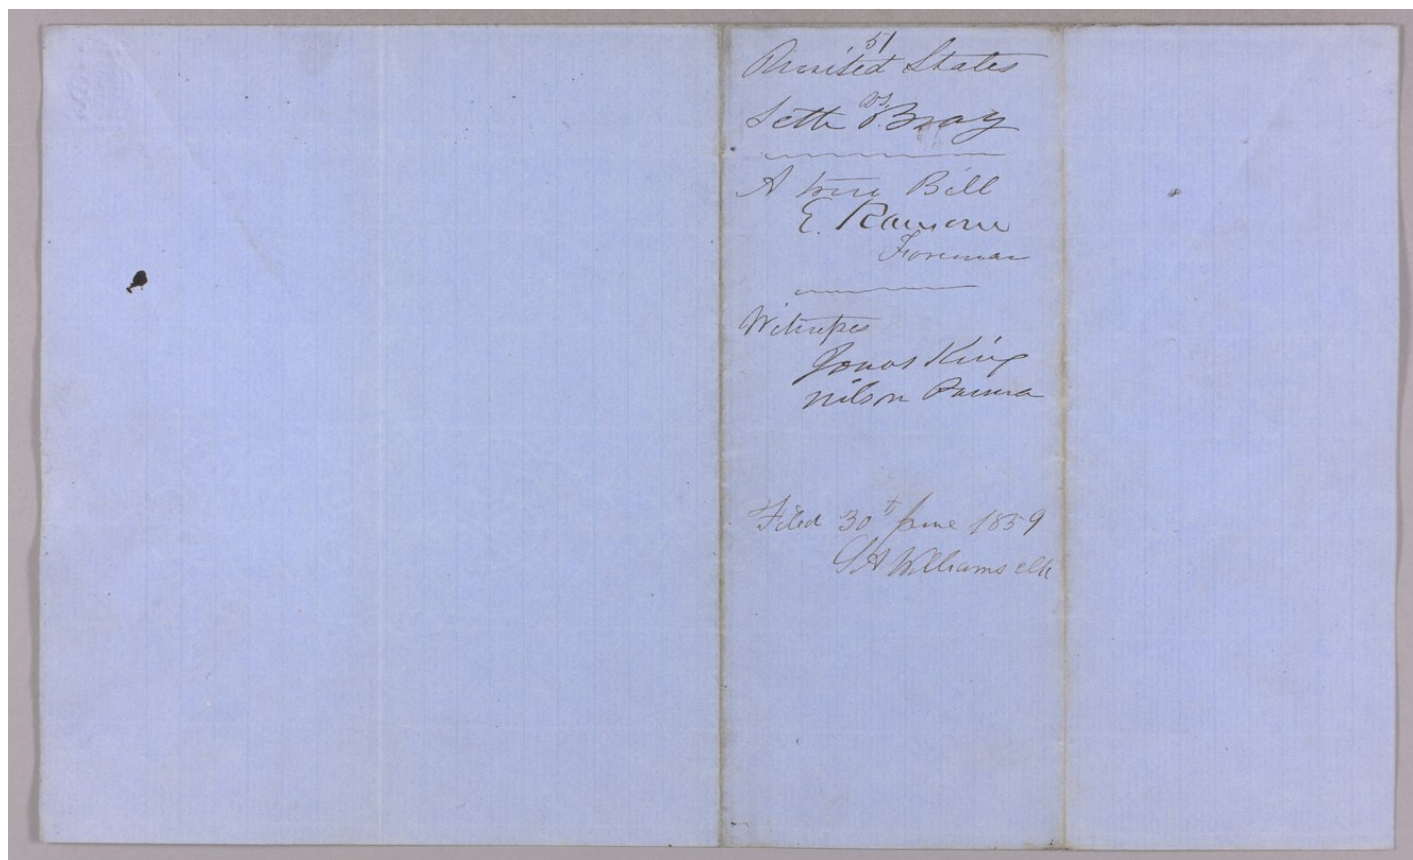 51
United States
vs.
Seth P. Bray
A true Bill
E. Ransom
Foreman
Witnesses
Jonas King
Nilson
Filed 30t June 1859
Williams clk